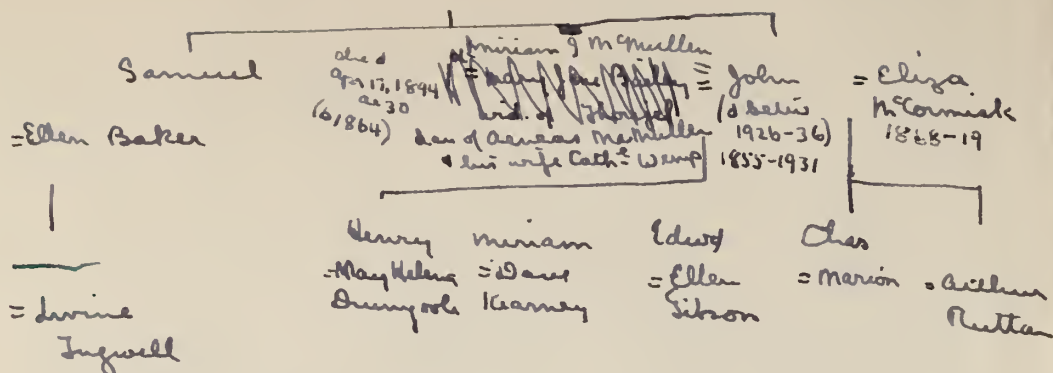 Samuel
= Ellen Baker
= Irvine
Ingwell
died
Apr 17, 1894
ae 30
(b 1864)
Miriam J McMullen
= Mary Jane
wid. of
dau of Aeneas McMullen
& his wife Cath. Wemp
= John
(d betw
1926-36)
1855-1931
= Eliza
McCormick
1868-19
Henry
= May Helena
Miriam
= Dave
Kearney
Edwd
= Ellen
Gibson
Chas
= Marion
= Arthur
Ruttan